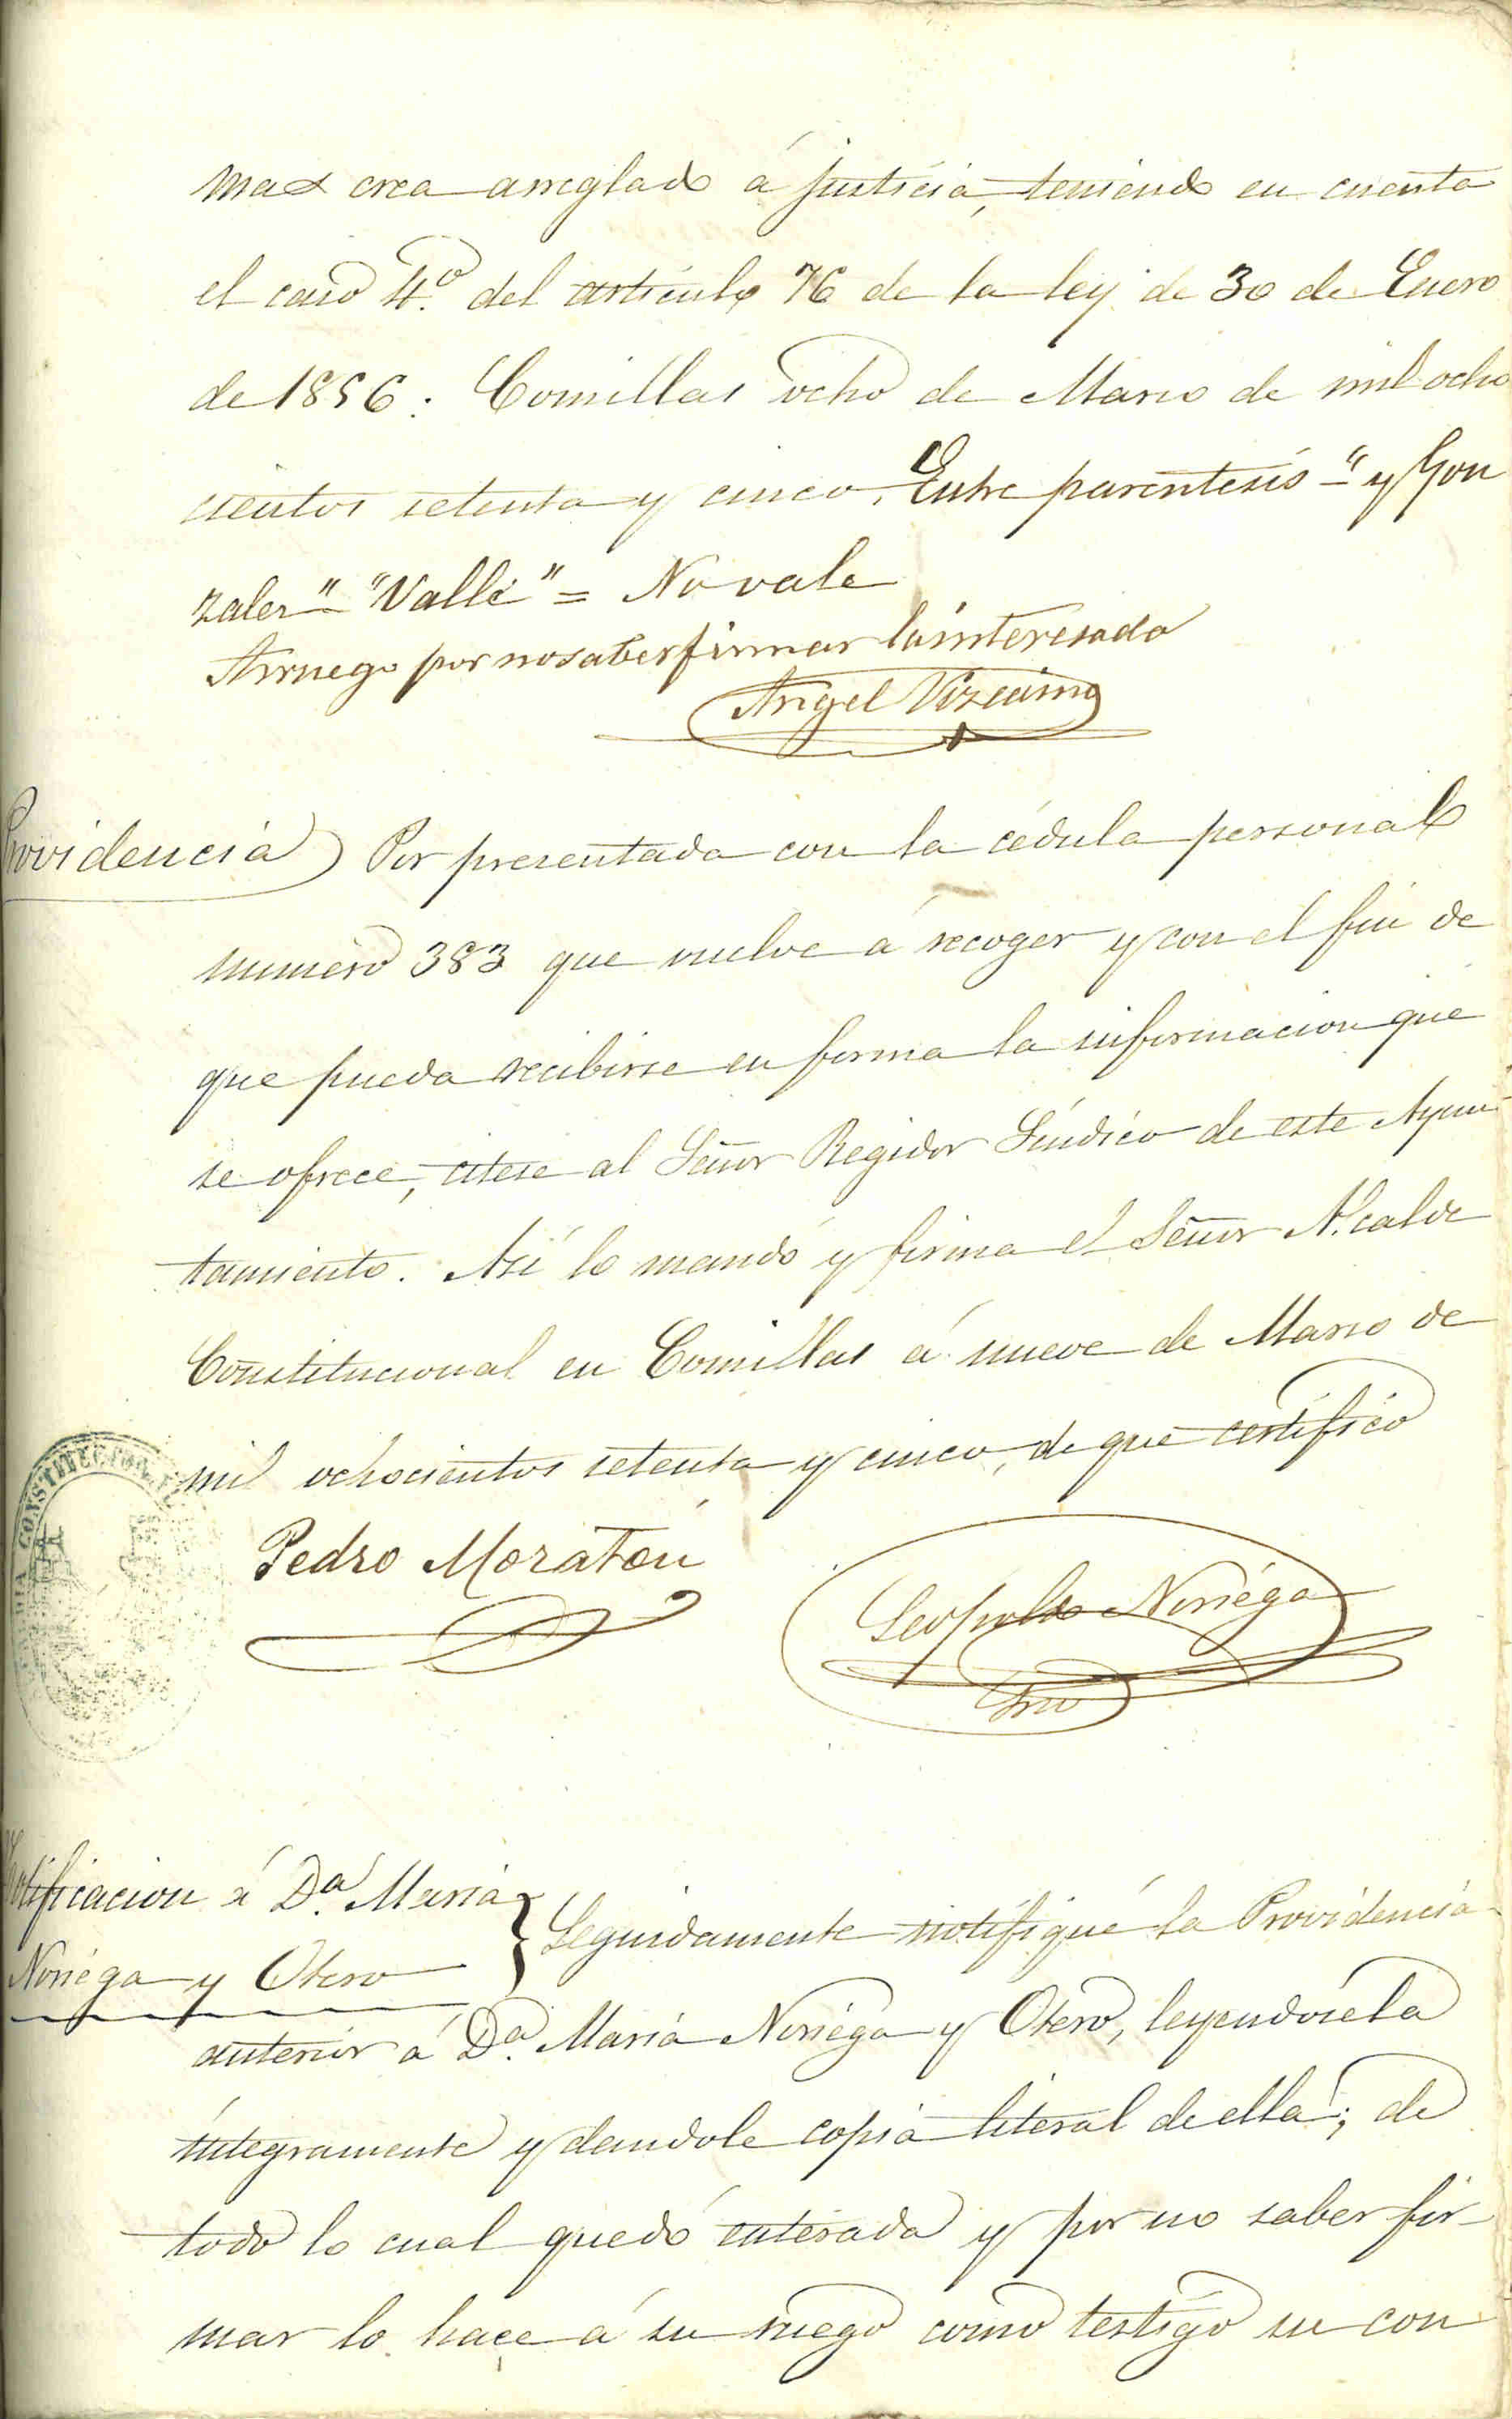 mas crea arreglado á justicia, teniendo en cuenta
el caso 4.º del artículo 76 de la ley de 30 de Enero
de 1856. Comillas ocho de Marzo de mil ocho
cientos setenta y cinco. Entre parentesis "y Gon
zalez" "Valle" = No vale
Arruego por no saber firmar la interesada
Angel Vizcaino
Providencia) Por presentada con la cédula personal
numero 383 que vuelve á recoger y con el fin de
que pueda recibirse en forma la informacion que
se ofrece, citese al Señor Regidor Síndico de este Ayun-
tamiento. Así lo mandó y firma el Señor Alcalde
Constitucional en Comillas á nueve de Marzo de
mil ochocientos setenta y cinco, de que certifico
CONSTITUCIONAL
Pedro Moratón
Leopoldo Noriéga
Srio
Notificacion á D.ª Maria
Noriéga y Otero
Seguidamente notifiqué la Providencia
anterior á D.ª María Noriéga y Otero, leyendosela
íntegramente y dandole copia literal de ella; de
todo lo cual quedó enterada y por no saber fir-
mar lo hace á su ruego como testigo su con